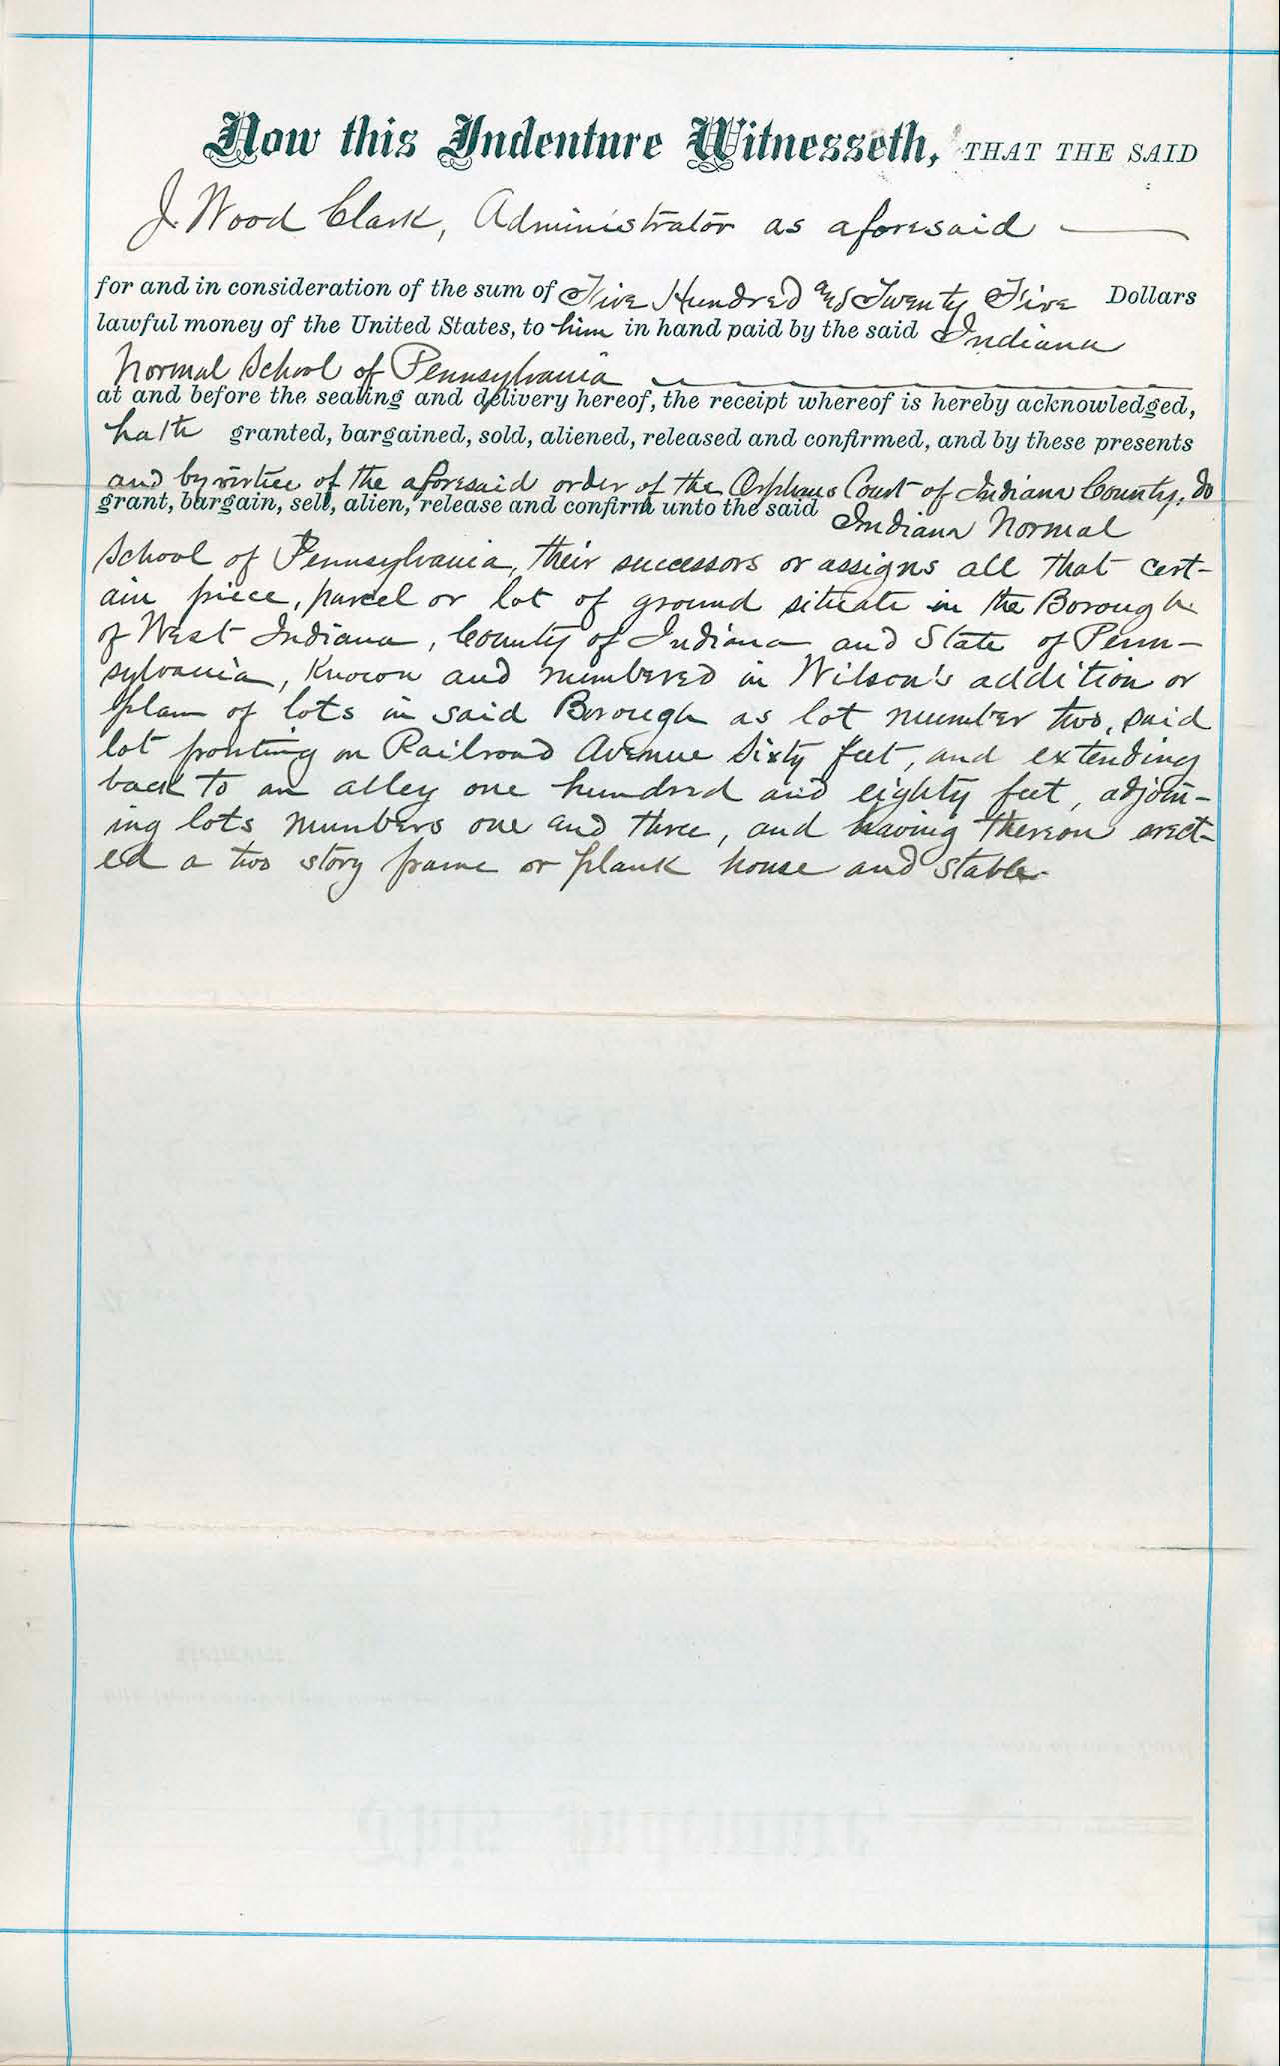 Now this Indenture Witnesseth, THAT THE SAID
J. Wood Clark, Administrator as aforesaid
for and in consideration of the sum of Five Hundred and Twenty Five Dollars
lawful money of the United States, to him in hand paid by the said Indiana
Normal School of Pennsylvania
at and before the sealing and delivery hereof, the receipt whereof is hereby acknowledged,
hath granted, bargained, sold, aliened, released and confirmed, and by these presents
and by virtue of the aforesaid order of the Orphans Court of Indiana County, do
grant, bargain, sell, alien, release and confirm unto the said Indiana Normal
School of Pennsylvania, their successors or assigns all that cert-
ain piece, parcel or lot of ground situate in the Borough
of West Indiana, County of Indiana and State of Penn-
sylvania, Known and numbered in Wilson's addition or
plan of lots in said Borough as lot number two, said
lot fronting on Railroad Avenue Sixty feet, and extending
back to an alley one hundred and eighty feet, adjoin-
ing lots numbers one and three, and having thereon erect-
ed a two story frame or plank house and stable.